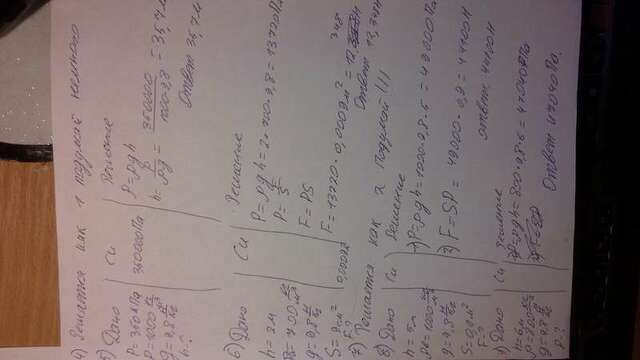 4) Решается как 1 подумай немного
5) Дано Си Решение
P=360кПа 360000Па P=ρgh
ρ=1000 кг/м³ h= P/ρg = 350000/1000·9,8 = 35,7м
g=9,8 Н/кг Ответ 35,7м
6) Дано Си Решение
h=2м P=ρgh=2·700·9,8=13720Па
ρ=700 кг/м³ P=F/S
g=9,8 Н/кг F=PS
F=13720·0,0009м²=12,348Н
F-?
7) Решается как 2 подумай!!!
8) Дано Си Решение
h=5м 1) P=ρgh=1000·9,8·5=49000Па
ρ=1000 кг/м³ 2) F=SP=49000·0,9=44100Н
g=9,8 Н/кг
F-? ответ 44100Н
Дано Си решение
P=ρgh=800·9,8·6=47040Па
ρ=800 кг/м³
g=9,8 Н/кг
P-? Ответ 47040Па.